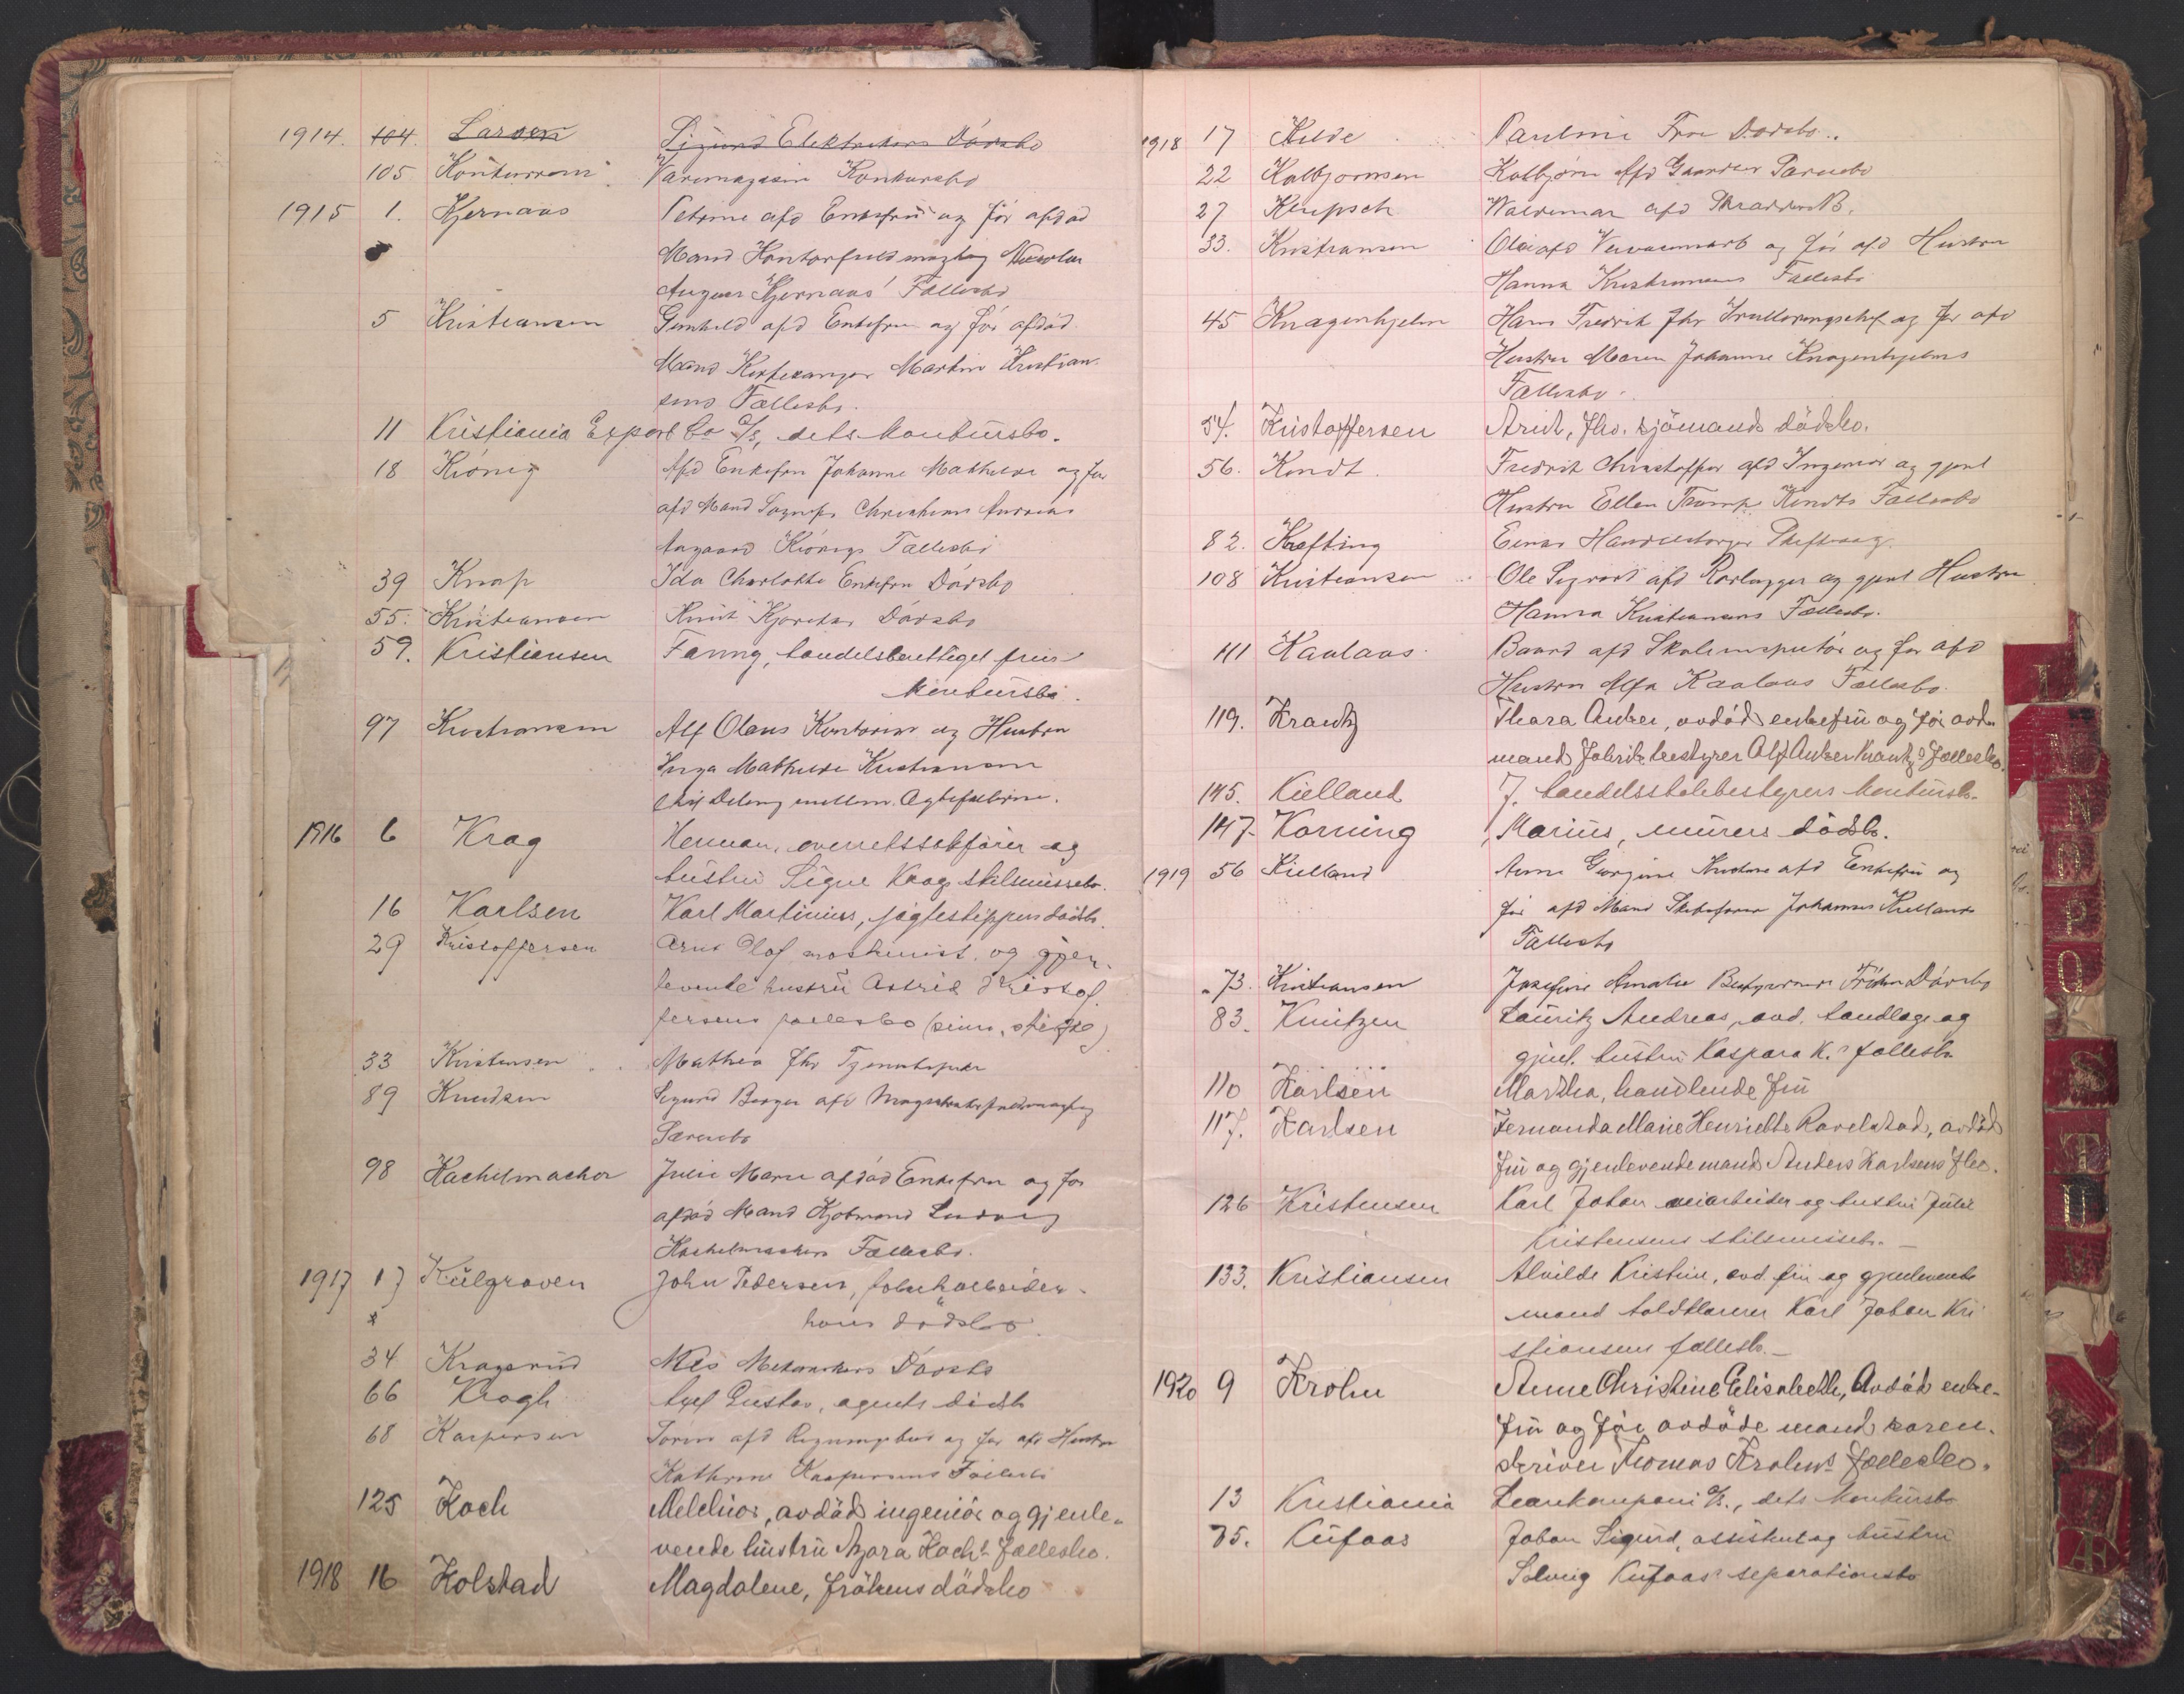 1914. 104. Larsen Sigurd Elektrikers Dödsbo
105 Varemagasin Konkursbo
1915 1. Kjernaas Petrine afd Enkefru og för afdød
Mand Kontorfuldmægtig
August Kjernaas' Fællesbo
5 Kristiansen Gunhild afd Enkefru og för afdød
Mand Kirkesanger Martin Kristian-
sens Fællesbo.
11 Kristiania Export Co A/S, dets konkursbo.
18 Krönig Afd Enkefru Johanne Mathilde og for
afd Mand Sognepr. Christian Andreas
Aagaard Krönigs Fællesbo
39 Knap Ida Charlotte Enkefru Dödsbo
55. Kristiansen Knut Kjørekar Dödsbo
59. Kristiansen Fanny, handelsberettiget frues
konkursbo.
97 Kristiansen Alf Olaus Kontorist og Hustru
Inga Mathilde Kristiansen
Skif Deling mellem Ægtefællerne.
1916 6 Krag Herman, overretssakfører og
hustru Signe Krags skilsmissebo.
16 Karlsen Karl Martinius, jagteskippers dødsbo.
29 Kristoffersen Arnt Olaf maskinist. og gjen-
levende hustru Astrid Kristof-
fersens fællesbo
33 Kristensen Mathea Fhv Tjenestepike
89 Knudsen Sigurd Birger afd Magistratsfuldmægtig
Særeiebo
98 Kachelmacher Julie Marie afdöd Enkefru og for
afdöd Mand Kjøbmand Ludvig
Kachelmachers Fællesbo.
1917 17 Külgraven John Pedersen, fabrikarbeider-
hans dødsbo.
34 Kragerud Nils Mekanikers Dödsbo
66 Krogh Axel Gustav, agents dødsbo
68 Kaspersen Sören afd Bygningsbud og for afd Hustru
Kathrine Kaspersens Fællesbo
125 Koch Melchior, avdöd ingeniör og gjenle-
vende hustru Azora Koch's fællesbo.
1918 16 Kolstad Magdalene, frökens dödsbo
1918 17 Kilde Pauline Frue Dödsbo.
22 Kolbjørnsen Kolbjørn afd Gaardbr Særeiebo
27 Klupsch Waldemar afd B.
33. Kristiansen Ole afd og för afd Hustru
Hanna Kristiansens Fællesbo
45 Knagenhjelm Hans Fredrik Fhv Trælleringschef og for afd
Hustru Maren Johanne Knagenhjelms
Fællesbo.
54. Kristoffersen Arnt, fhv. sjömands dödsbo.
56. Kindt. Fredrik Christoffer afd Ingeniør og gjenl
Hustru Ellen Tromp Kindts Fællesbo
82. Krefting Einar Skiftesag.
108 Kristiansen Ole Sigvard afd Rørlægger og gjenl Hustru
Hanna Kristiansens Fællesbo.
111 Kaalaas Baard afd Skoleinspektör og for afd
Hustru Alfa Kaalaas Fællesbo.
119. Krantz Thara Anker, avdöd enkefru og för avd.
mand fabrikbestyrer Alf Anker Krantz's fællesbo.
145. Kielland J. handelsskolebestyrers konkursbo.
147. Korning Marius, murers dödsbo.
1919 56 Kielland Anne Georgine Kirstine afd Enkefru og
för afd Mand Skibsfører Johannes Kiellands
Fællesbo
73. Kristiansen Josefine Amalie Bestyrerinde Fröken Dödsbo
83. Knitzen Lauritz Andreas, avd. handlage og
gjenl. hustru Kaspara K.s fællesbo
110 Karlsen Martha, handlende fru
117. Karlsen Fernanda Marie Henriette Ravelstad, avdöd
fru og gjenlevende mand Anders Karlsens fbo.
126 Kristensen Karl Johan veiarbeider og hustru Julie
Kristensens skilsmissebo.
133. Kristiansen Alvilde Kristine, avd. fru og gjenlevende
mand toldklarerer Karl Johan Kri
stiansens fællesbo.
1920 9 Krohn Anne Christine Elisabeth, Avdöd enke-
fru og för avdöde mand soren-
skriver Thomas Krohns fællesbo.
13 Kristiania Leirekompani A/S., dets konkursbo
75. Küfaas Johan Sigurd, assistent og hustru
Solveig Küfaas's separationsbo